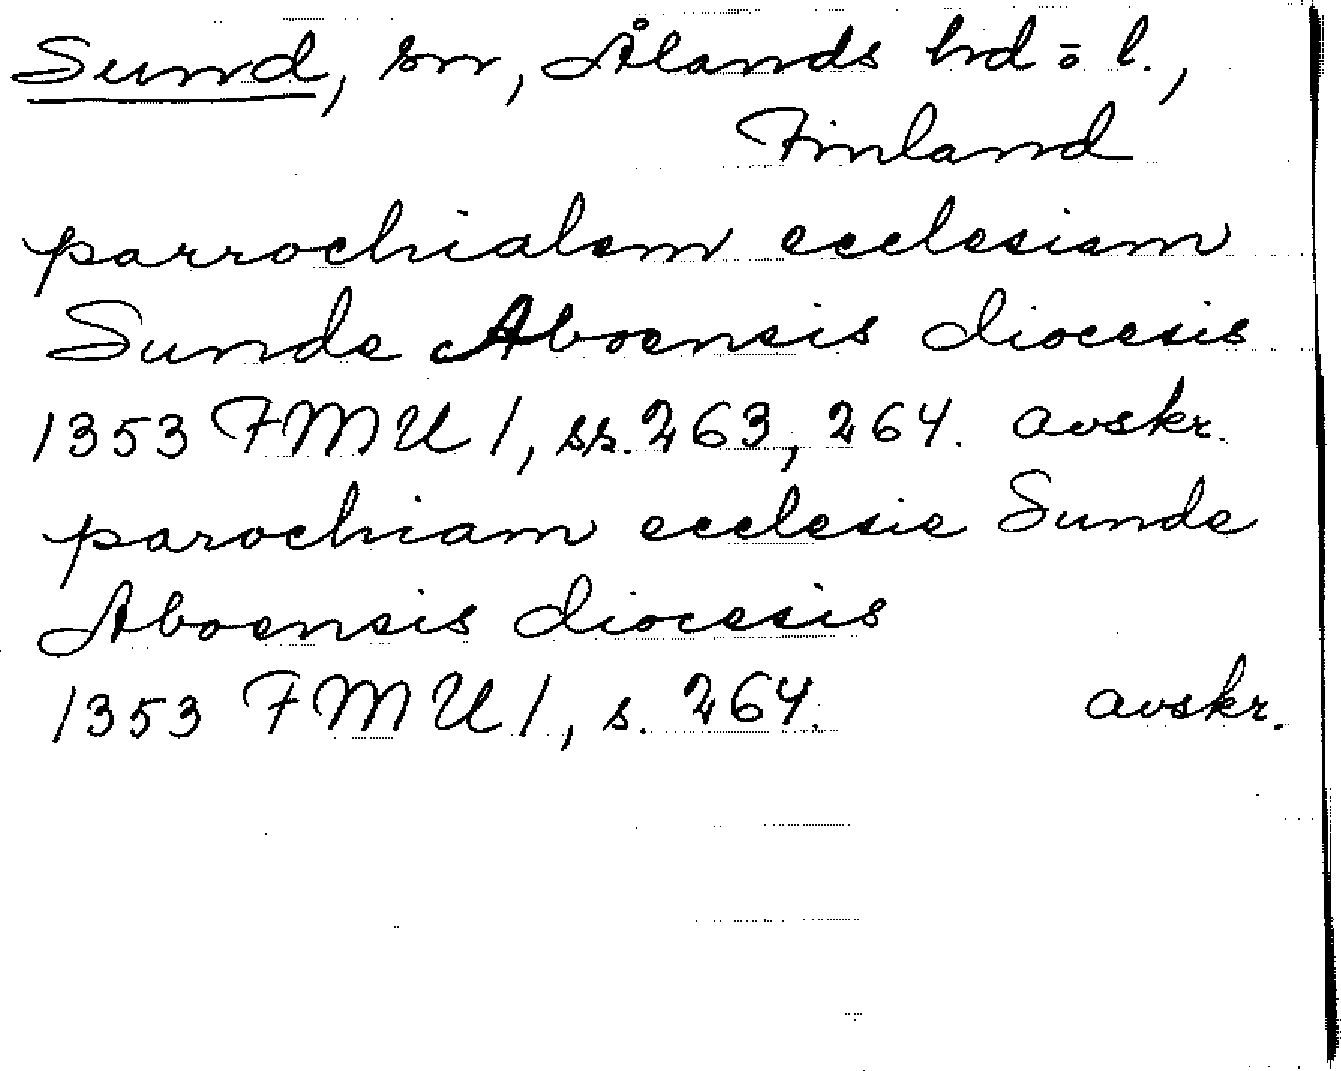 Sund, sn, Ålands hd o l.,
Finland
parrochialem ecclesiam
Sunde Aboensis diocesis
1353 FMU 1, ss. 263, 264. avskr.
parochiam ecclesie Sunde
Aboensis diocesis
1353 FMU 1, s. 264. avskr.